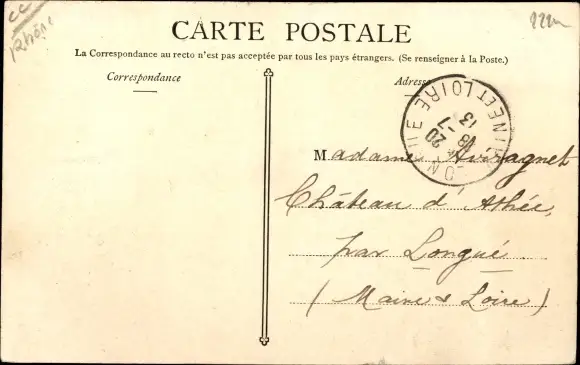 CC
Rhône
CARTE POSTALE
La Correspondance au recto n'est pas acceptée par tous les pays étrangers. (Se renseigner à la Poste.)
Correspondance
Adresse
INE ET LOIRE
20
18 - 7
13
Madame Auragnet
Château d'Athée,
par Longué
(Maine & Loire)